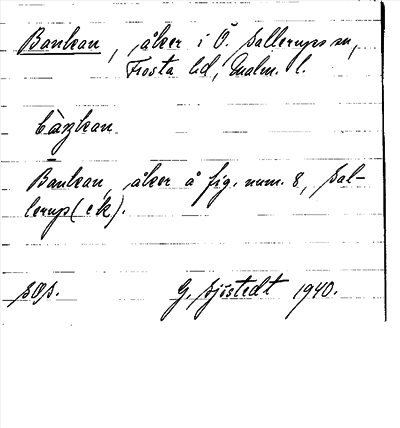 Bankan, åker i Ö. Sallerups sn,
Frosta hd, Malm. l.
bàŋkan
Bankan, åker å fig. num. 8, Sal-
lerup (ek).
SOS.	G. Sjöstedt 1940.